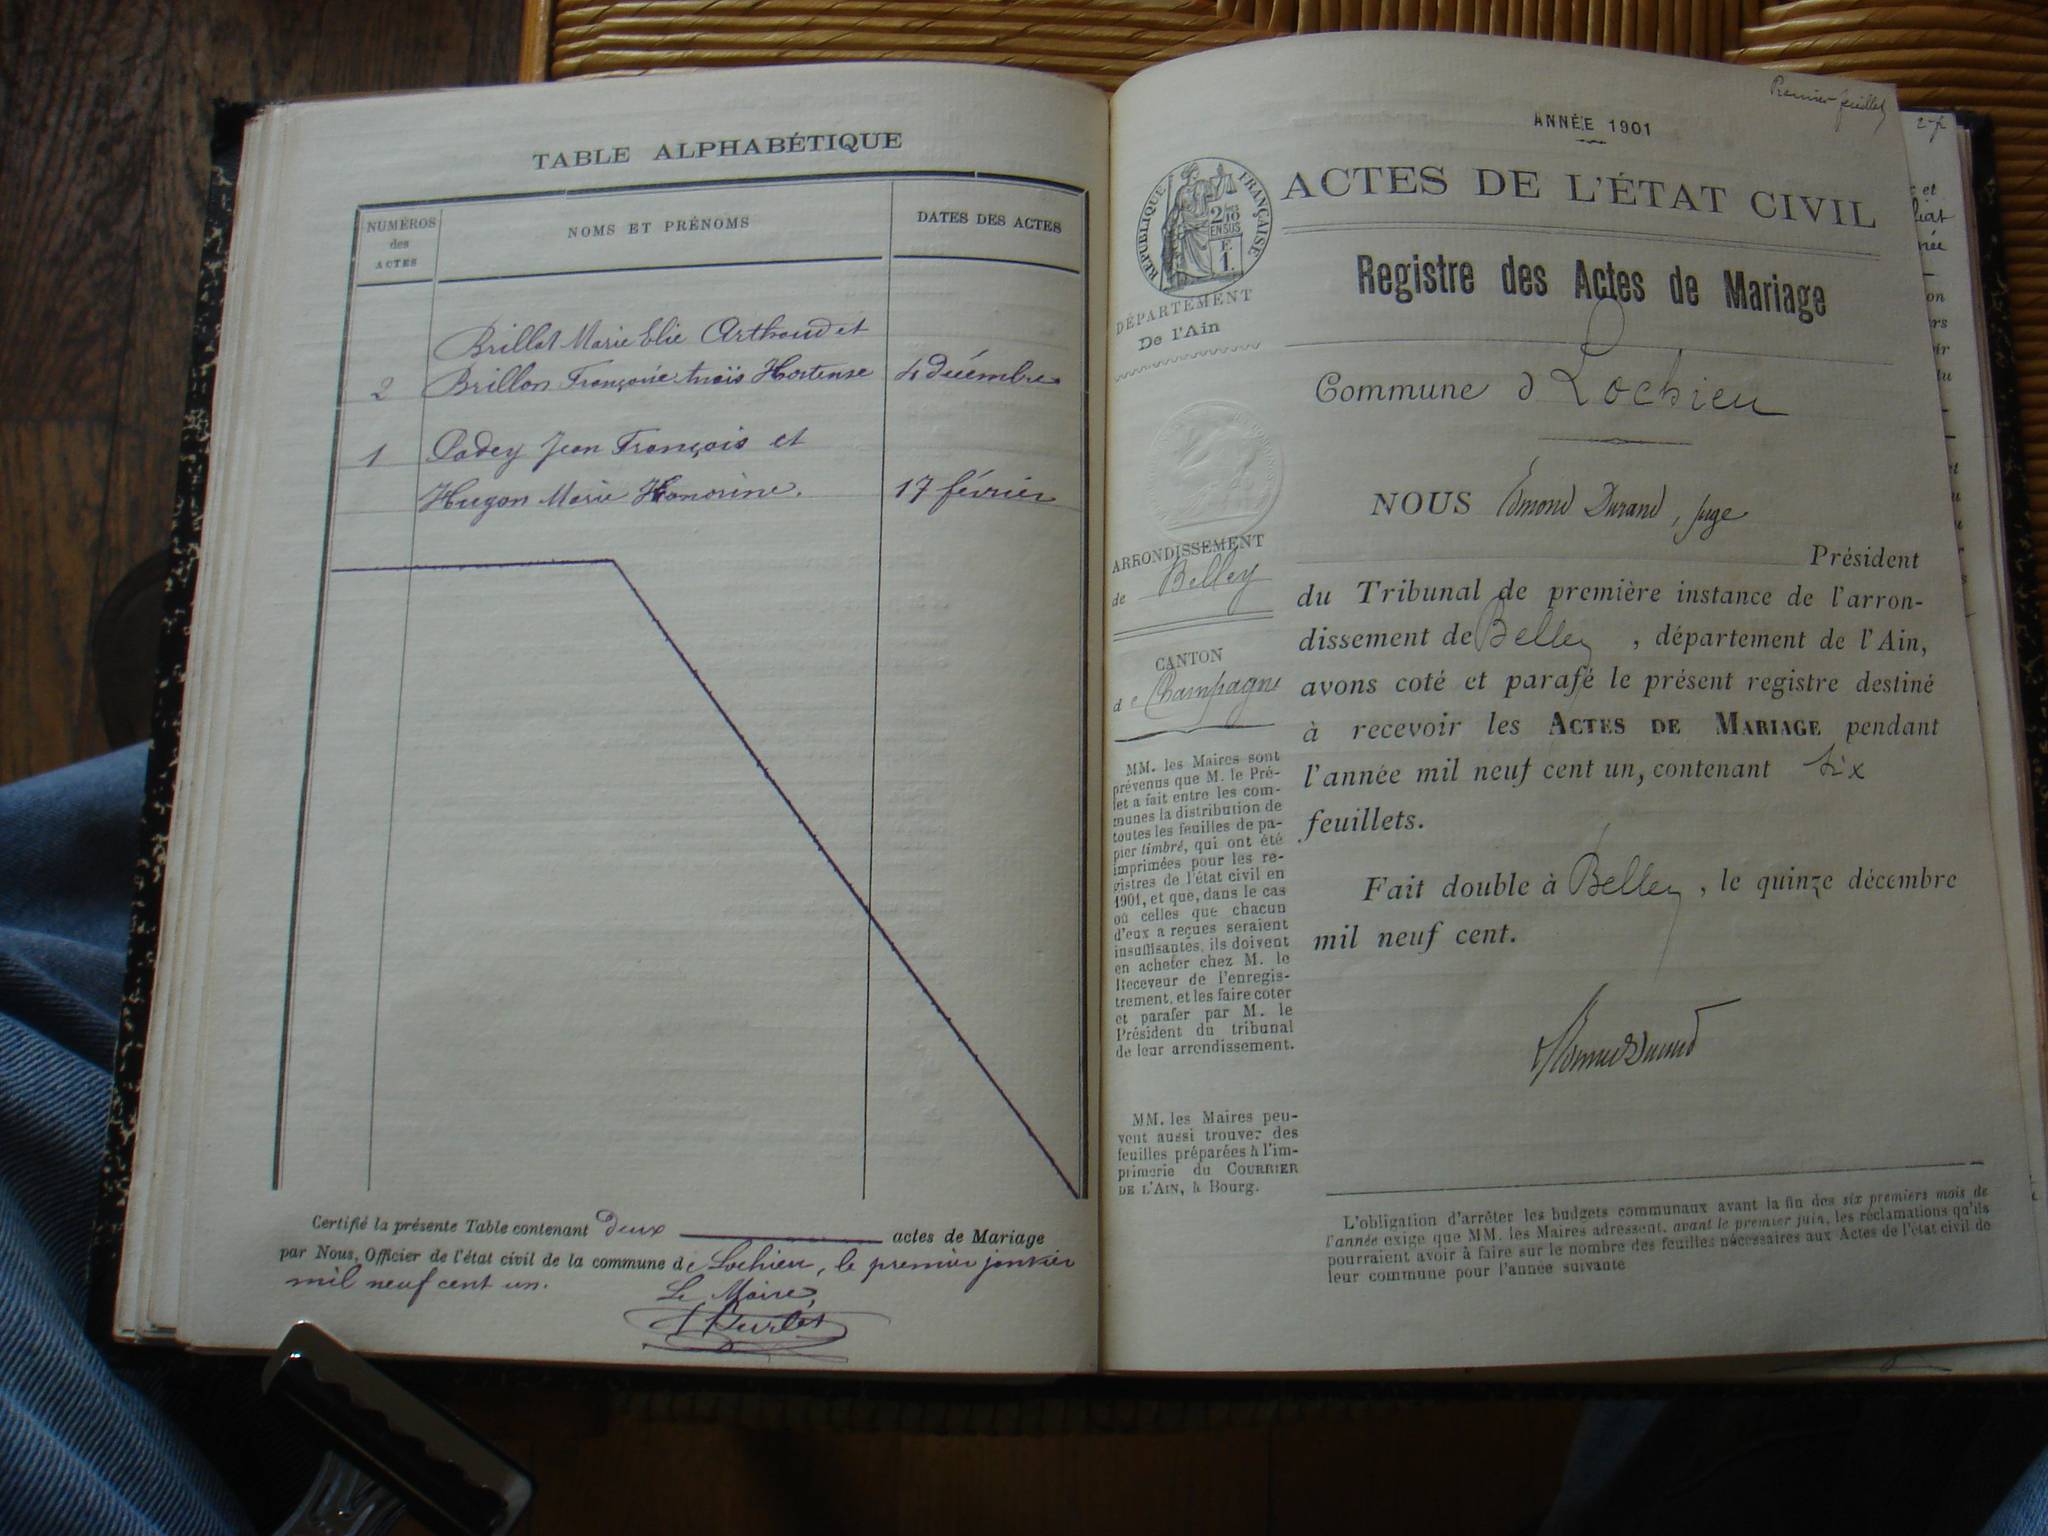 TABLE ALPHABÉTIQUE
NUMÉROS
des
ACTES
NOMS ET PRÉNOMS
DATES DES ACTES
Brillat Marie Elie Arthaud et
2 Brillon Françoise Anaïs Hortense 4 décembre
1 Padey Jean François et
Hugon Marie Honorine. 17 février
Certifié la présente Table contenant deux actes de Mariage
par Nous, Officier de l'état civil de la commune de Lochieu, le premier janvier
mil neuf cent un.
Le Maire,
Premier feuillet
ANNÉE 1901
ACTES DE L'ÉTAT CIVIL
RÉPUBLIQUE FRANÇAISE
2/10
EN SUS
1.
Registre des Actes de Mariage
DÉPARTEMENT
De l'Ain
Commune d Lochieu
NOUS Edmond Durand, juge
Président
du Tribunal de première instance de l'arron-
dissement de Belley, département de l'Ain,
avons coté et parafé le présent registre destiné
à recevoir les ACTES DE MARIAGE pendant
l'année mil neuf cent un, contenant six
feuillets.
Fait double à Belley, le quinze décembre
mil neuf cent.
Edmond Durand
ARRONDISSEMENT
de Belley
CANTON
de Champagne
MM. les Maires sont
prévenus que M. le Pré-
fet a fait entre les com-
munes la distribution de
toutes les feuilles de pa-
pier timbré, qui ont été
imprimées pour les re-
gistres de l'état civil en
1901, et que, dans le cas
où celles que chacun
d'eux a reçues seraient
insuffisantes, ils doivent
en acheter chez M. le
Receveur de l'enregis-
trement, et les faire coter
et parafer par M. le
Président du tribunal
de leur arrondissement.
MM. les Maires peu-
vent aussi trouver des
feuilles préparées à l'im-
primerie du COURRIER
DE L'AIN, à Bourg.
L'obligation d'arrêter les budgets communaux avant la fin des six premiers mois de
l'année exige que MM. les Maires adressent, avant le premier juin, les réclamations qu'ils
pourraient avoir à faire sur le nombre des feuilles nécessaires aux Actes de l'état civil de
leur commune pour l'année suivante